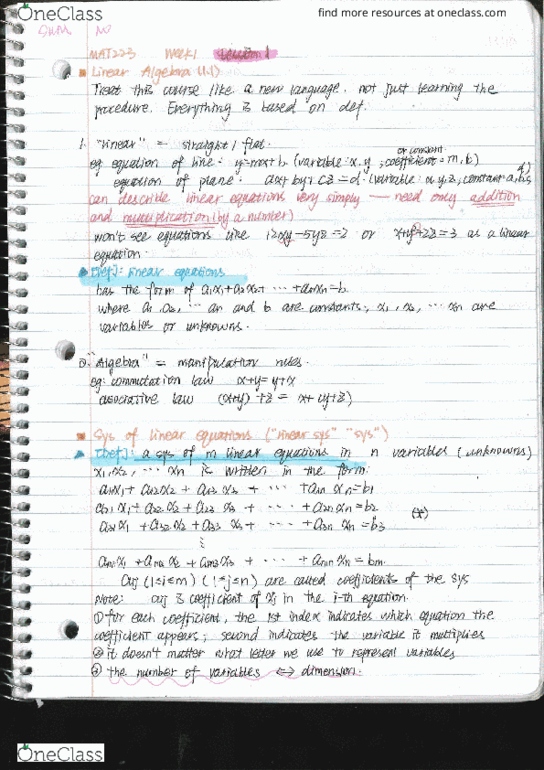 OneClass
find more resources at oneclass.com
MAT223 Week1 Lecture 1
Linear Algebra (1.1)
Treat this course like a new language. not just learning the
procedure. Everything is based on def.
1. "linear" = straight / flat.
or constant
eg equation of line: y=mx+b (variable: x, y, coefficient = m, b)
equation of plane: ax+by+cz=d (variable: x y z, constant a, b, c
d)
can describe linear equations very simply — need only addition
and multiplication (by a number)
won't see equations like 12xy-5yz=2 or x+y²+2z=3 as a linear
equation.
Def]: linear equations
has the form of a₁x₁+a₂x₂+ ... +anxn=b.
where a₁ a₂, ... an and b are constants, x₁, x₂, ... xn are
variables or unknowns.
2. "Algebra" = manipulation rules.
eg: commutation law x+y=y+x
associative law (x+y)+z = x+(y+z)
Sys of linear equations ("linear sys" "sys")
[Def]: a sys of m linear equations in n variables (unknowns)
x₁, x₂, ... xn is written in the form:
a₁₁x₁+ a₁₂x₂ + a₁₃x₃ + ... + a₁n xn=b₁
a₂₁x₁ + a₂₂x₂ + a₂₃x₃ + ... + a₂n xn=b₂
a₃₁x₁ + a₃₂x₂ + a₃₃x₃ + ... + a₃n xn=b₃
(*)
⋮
am₁x₁ + am₂x₂ + am₃x₃ + ... + amn xn = bm.
aij (1≤i≤m) (1≤j≤n) are called coefficients of the sys
Note: aij is coefficient of xj in the i-th equation.
① for each coefficient, the 1st index indicates which equation the
coefficient appears; second indicates the variable it multiplies
② it doesn't matter what letter we use to represent variables
③ the number of variables ⟺ dimension.
OneClass